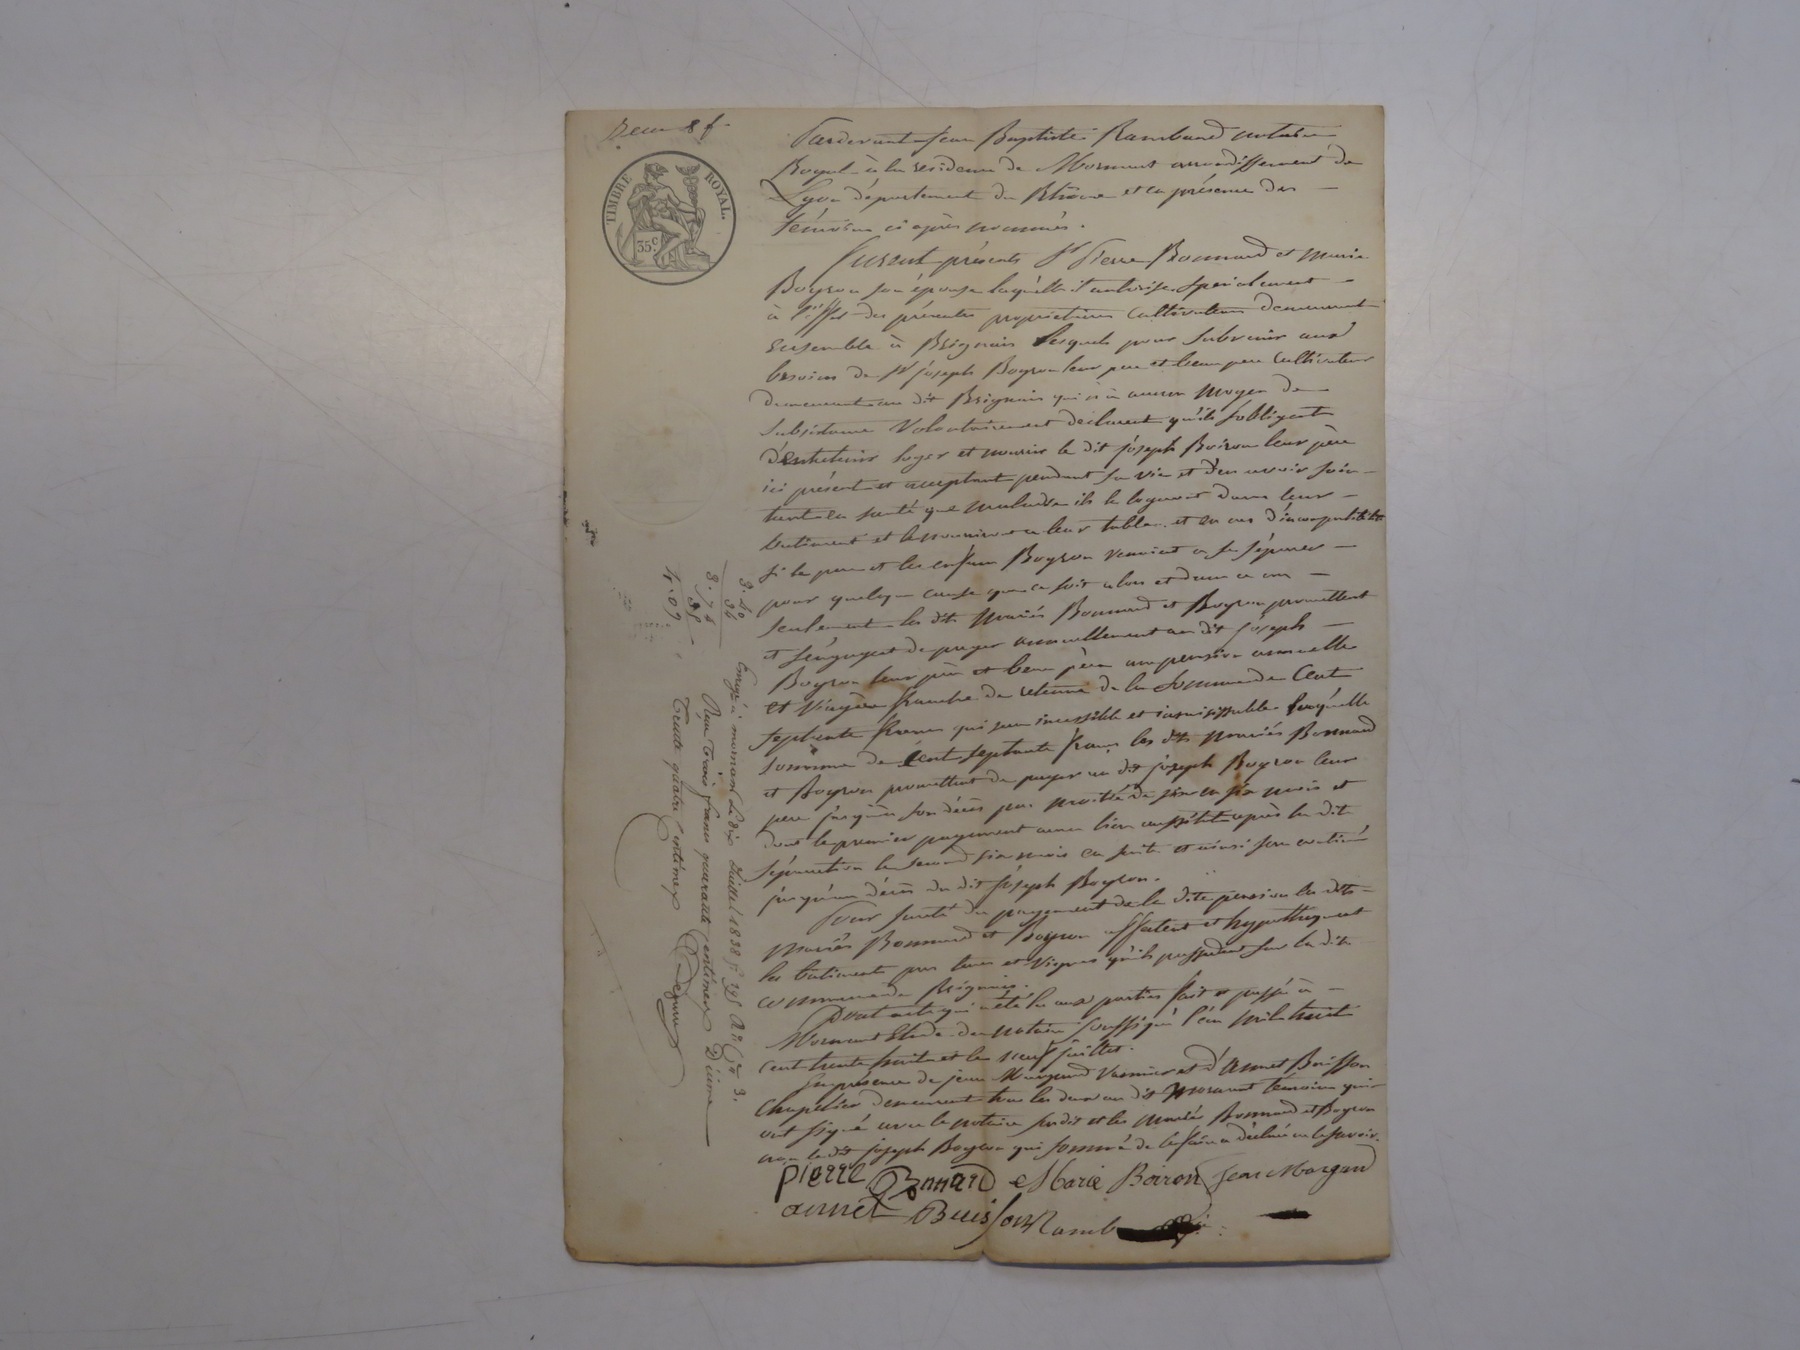 Deux 8 f.
TIMBRE ROYAL.
35 c.
Pardevant Jean Baptiste Rambaud notaire
Royal à la résidence de Mornant arrondissement de
Lyon département du Rhône et en présence des
témoins ci après nommés.
Furent présents Sr Pierre Bonnard et Marie
Boyron son épouse laquelle il autorise spécialement
à l'effet des présentes propriétaires cultivateurs demeurant
ensemble à Brignais lesquels pour subvenir aux
besoins de Sr joseph Boyron leur pere et beau pere cultivateur
demeurant au dit Brignais qui n'a aucun moyen de
subsistance volontairement déclarent qu'ils s'obligent
d'entretenir loger et nourrir le dit joseph Boiron leur père
ici présent et acceptant pendant sa vie et d'en avoir soin
tant en santé que maladie ils le logeront dans leur
batiment et le nourriront a leur table et en cas d'incompatibilité
si le pere et les enfans Boyron venoient a se séparer
pour quelque cause que ce soit alors et dans ce cas
seulement les dits mariés Bonnard et Boyron promettent
et s'engagent de payer annuellement au dit joseph
Boyron leur père et beau père une pension annuelle
et viagère franche de retenue de la somme de Cent
septante francs qui sera incessible et insaisissable laquelle
somme de Cent septante francs les dits mariés Bonnard
et Boyron promettent de payer au dit joseph Boyron leur
pere jusqu'à son décès par moitié de six en six mois et
dont le premier payement aura lieu aussitôt après la dite
séparation le second six mois en suite et ainsi sera continué
jusqu'au décès du dit joseph Boyron.
Pour sureté du payement de la dite pension les dits
mariés Bonnard et Boyron affectent et hypothèquent
les batiments pres terres et vignes qu'ils possedent sur la dite
commune de Brignais.
Dont acte qui a été lu aux parties fait & passé à
Mornant Etude du notaire soussigné l'an mil huit
cent trente huit et le neuf juillet.
En présence de jean Margand et d'Annet Buisson
Chapelier demeurant tous les deux au dit Mornant témoins qui
ont signé avec le notaire susdit et les mariés Bonnard et Boyron
non le dit joseph Boyron qui sommé de le faire a déclaré ne le savoir.
pierre Bonnard Marie Boiron Jean Margand
annet Buisson Ramb
3. 40
34
3. 74
35
4. 09
Enregé à mornant le dix Juillet 1838 fo 195 Ro Cse 3.
Reçu trois francs quarante centimes Décime
Trente quatre centimes